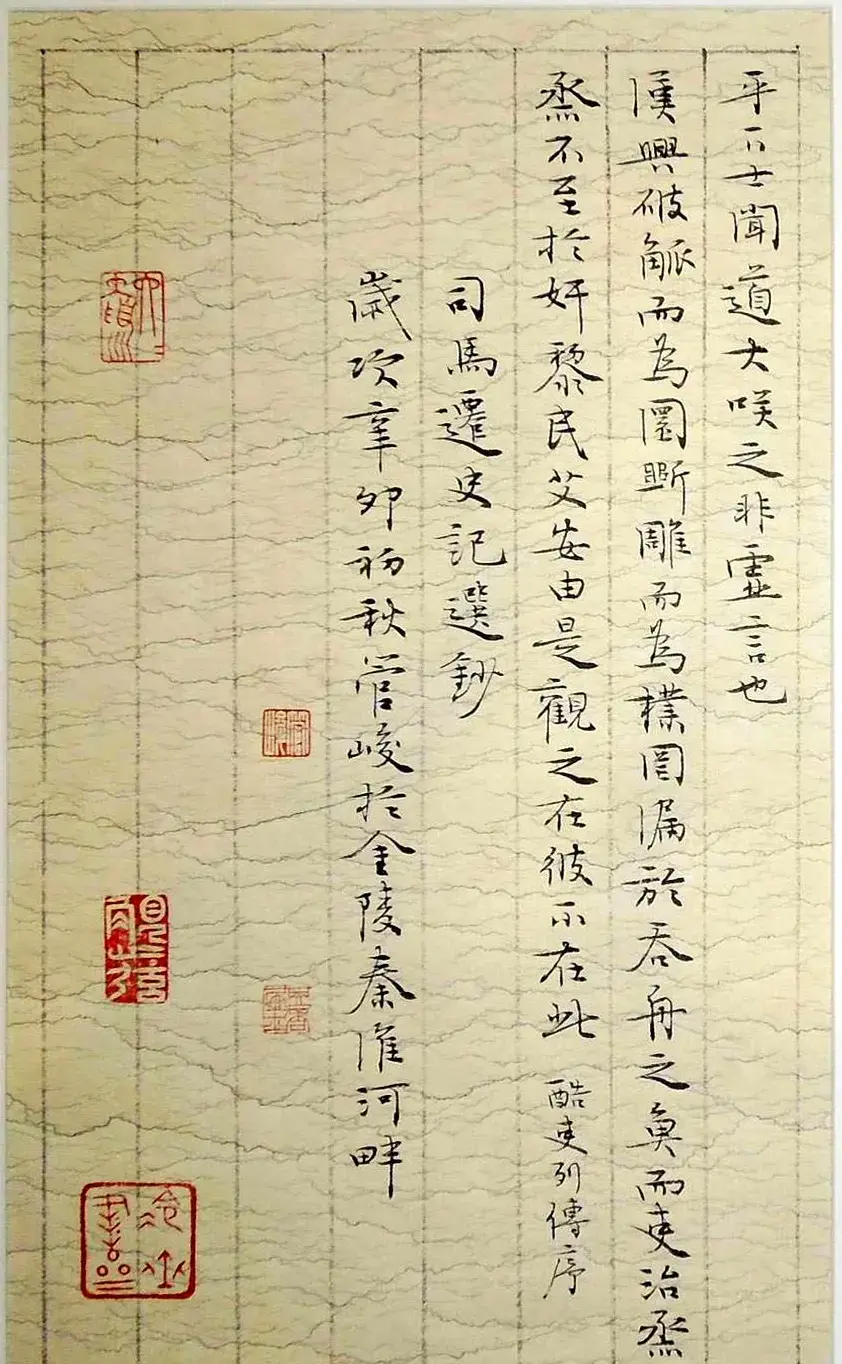 乎下士聞道大咲之非虛言也
漢興破觚而為圜斲雕而為樸罔漏於吞舟之魚而吏治烝
烝不至於奸黎民艾安由是觀之在彼不在此 酷吏列傳序
司馬遷史記選鈔
歲次辛卯初秋管峻於金陵秦淮河畔